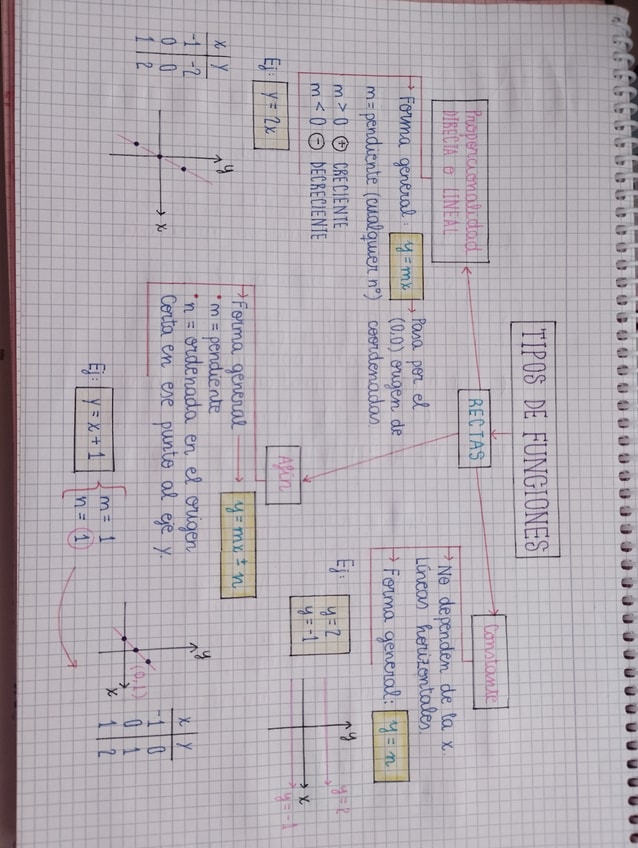 TIPOS DE FUNCIONES
RECTAS
Proporcionalidad
DIRECTA o LINEAL
Forma general: y = mx
Pasa por el
(0,0) origen de
coordenadas
m = pendiente (cualquier nº)
m > 0 + CRECIENTE
m < 0 - DECRECIENTE
Ej: y = 2x
x y
-1 -2
0 0
1 2
y
x
Afín
Forma general
y = mx ± n
• m = pendiente
• n = ordenada en el origen
Corta en ese punto al eje y.
Ej: y = x + 1
m = 1
n = 1
y
x
(0,1)
x y
-1 0
0 1
1 2
Constante
No dependen de la x
Líneas horizontales
Forma general: y = n
Ej:
y = 2
y = -1
y
x
y = 2
y = -1